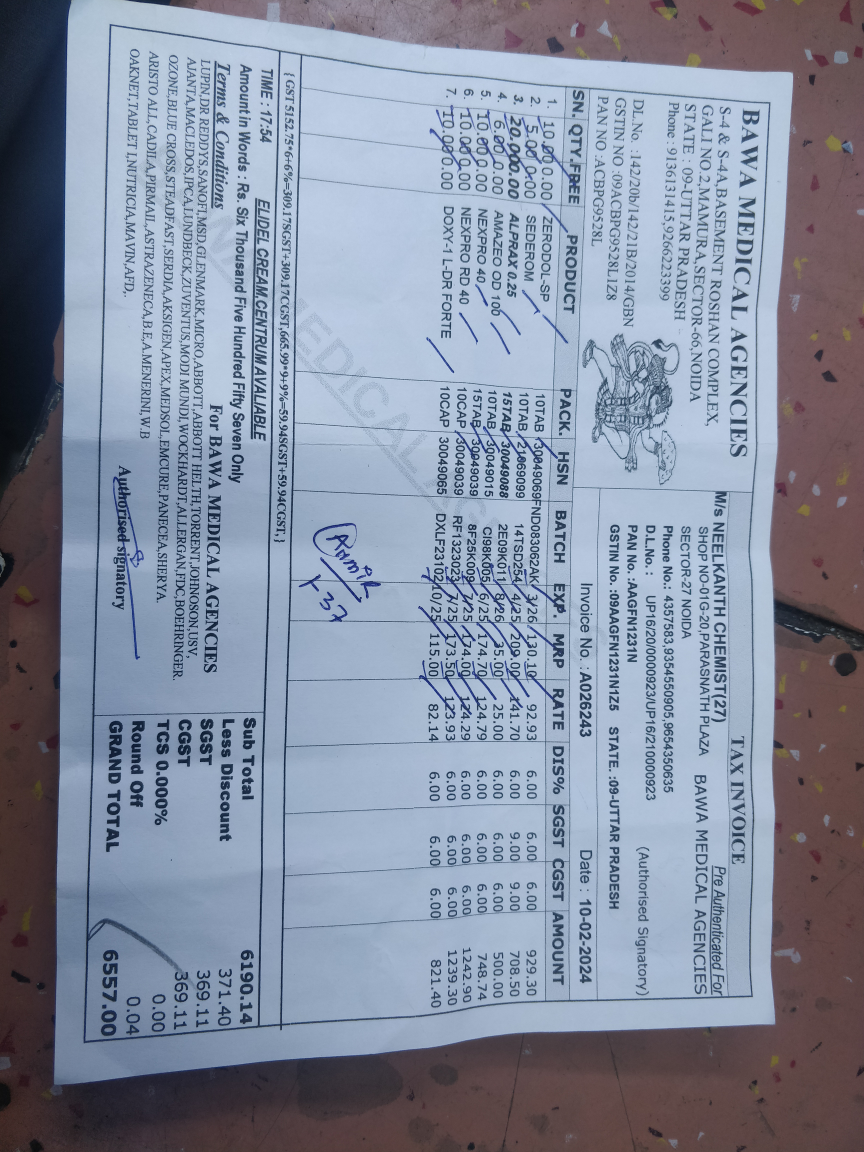 BAWA MEDICAL AGENCIES
S-4 & S-4A,BASEMENT ROSHAN COMPLEX,
GALI NO.2,MAMURA,SECTOR-66,NOIDA
STATE : 09-UTTAR PRADESH
Phone : 9136131415,9266223399
DL.No. : 142/20b/142/21B/2014/GBN
GSTIN NO :09ACBPG9528L1Z8
PAN NO :ACBPG9528L
TAX INVOICE
Pre Authenticated For
BAWA MEDICAL AGENCIES
(Authorised Signatory)
M/s NEELKANTH CHEMIST(27)
SHOP NO-01G-20,PARASNATH PLAZA
SECTOR-27 NOIDA
Phone No.: 4357583,9354550905,9654350635
D.L.No. : UP16/20/0000923/UP16/210000923
PAN No. :AAGFN1231N
GSTIN No. :09AAGFN1231N1Z5 STATE. :09-UTTAR PRADESH
Invoice No. : A026243 Date : 10-02-2024
SN. QTY.FREE PRODUCT PACK. HSN BATCH EXP. MRP RATE DIS% SGST CGST AMOUNT
1. 10.00 0.00 ZERODOL-SP 10TAB 30049069 FND083062AK 3/26 130.10 92.93 6.00 6.00 6.00 929.30
2. 5.00 0.00 SEDEROM 10TAB 21069099 14TSD254 4/25 209.00 141.70 6.00 9.00 9.00 708.50
3. 20.00 0.00 ALPRAX 0.25 15TAB 30049088 2E09K011 8/26 35.00 25.00 6.00 6.00 6.00 500.00
4. 6.00 0.00 AMAZEO OD 100 10TAB 30049015 CI98K005 6/25 174.70 124.79 6.00 6.00 6.00 748.74
5. 10.00 0.00 NEXPRO 40 15TAB 30049039 8F25K009 7/25 174.00 124.29 6.00 6.00 6.00 1242.90
6. 10.00 0.00 NEXPRO RD 40 10CAP 30049039 RF1323023 7/25 173.50 123.93 6.00 6.00 6.00 1239.30
7. 10.00 0.00 DOXY-1 L-DR FORTE 10CAP 30049065 DXLF23102 10/25 115.00 82.14 6.00 6.00 6.00 821.40
+ 37
{ GST 5152.75*6+6%=309.17SGST+309.17CGST,665.99*9+9%=59.94SGST+59.94CGST,}
ELIDEL CREAM,CENTRUM AVALIABLE
TIME : 17:54
Amount in Words : Rs. Six Thousand Five Hundred Fifty Seven Only
Terms & Conditions
For BAWA MEDICAL AGENCIES
LUPIN,DR REDDYS,SANOFI,MSD,GLENMARK,MICRO,ABBOTT,ABBOTT HELTH,TORRENT,JOHNOSON,USV,
AJANTA,MACLEDOS,IPCA,LUNDBECK,ZUVENTUS,MODI MUNDI,WOCKHARDT,ALLERGAN,FDC,BOEHRINGER.
OZONE,BLUE CROSS,STEADFAST,SERDIA,AKSIGEN,APEX,MEDSOL,EMCURE,PANECEA,SHERYA.
ARISTO ALL,CADILA,PIRMAIL,ASTRAZENECA,B.E.A,MENERINI,W.B
OAKNET,TABLET I,NUTRICIA,MAVIN,AFD,
Authorised signatory
Sub Total 6190.14
Less Discount 371.40
SGST 369.11
CGST 369.11
TCS 0.000% 0.00
Round Off 0.04
GRAND TOTAL 6557.00